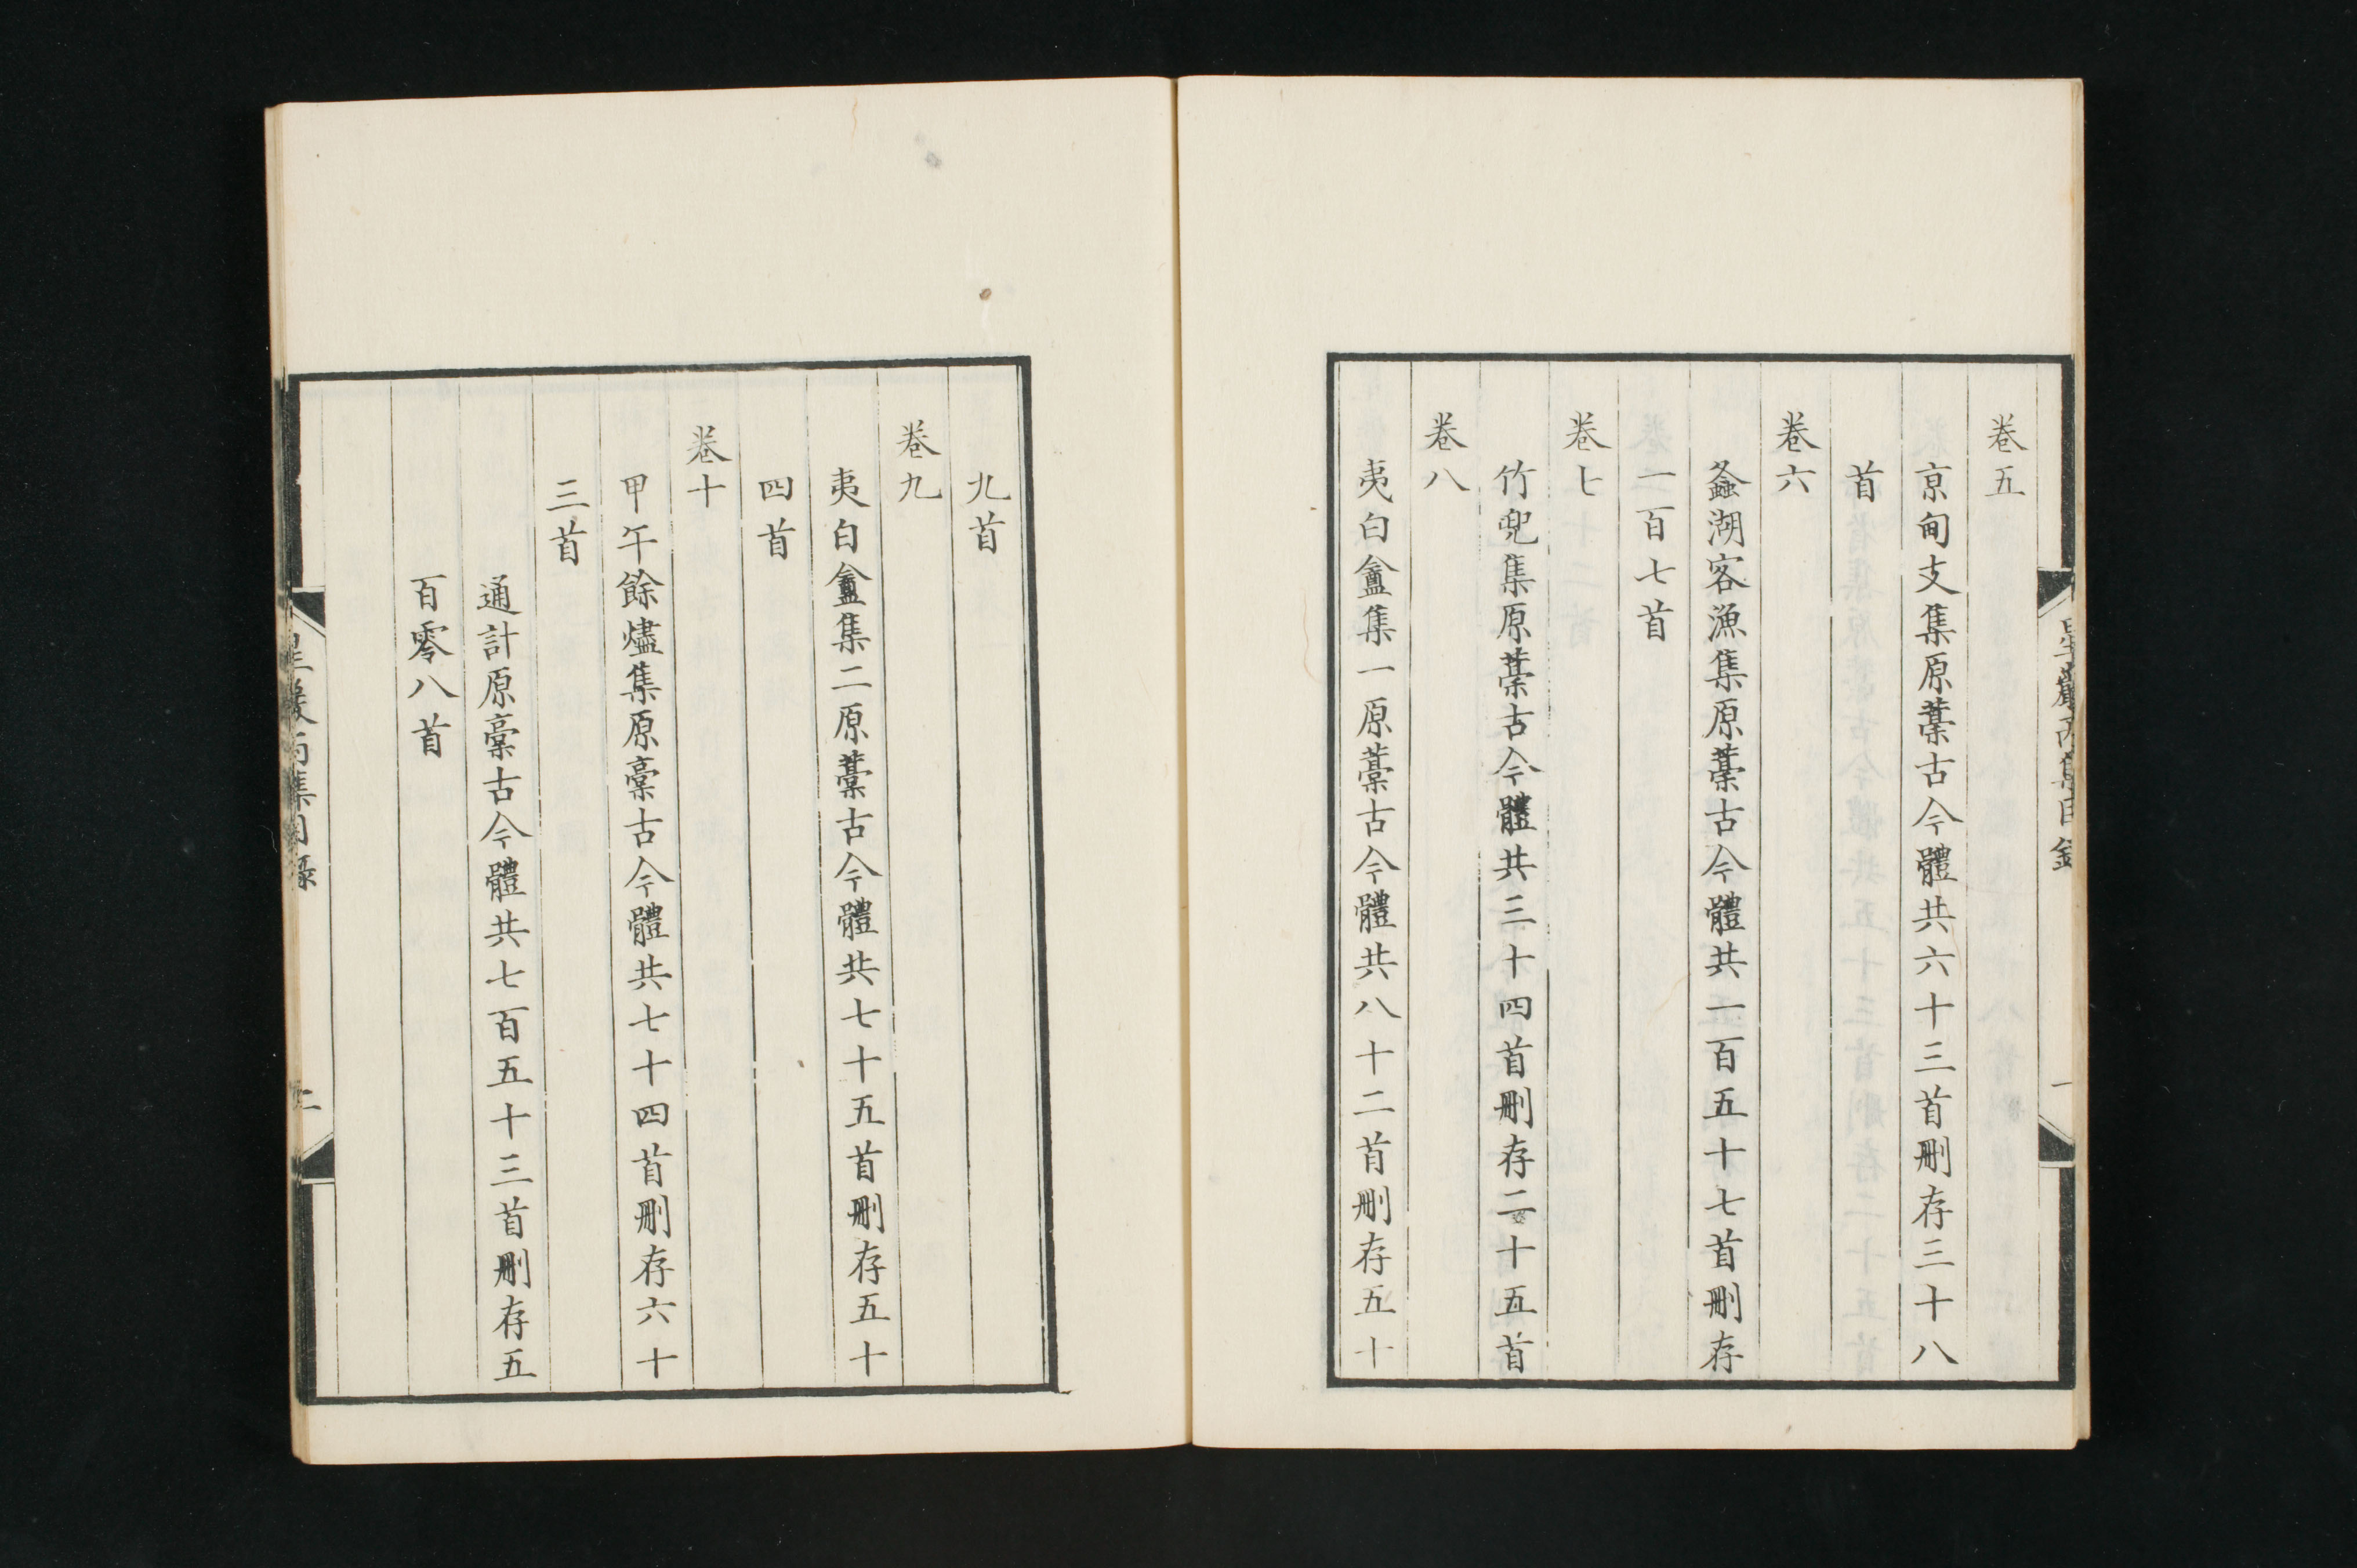 星巖丙集目錄
一
卷五
京甸支集原藁古今體共六十三首刪存三十八
首
卷六
螽湖客漁集原藁古今體共一百五十七首刪存
一百七首
卷七
竹兜集原藁古今體共三十四首刪存二十五首
卷八
夷白盦集一原藁古今體共八十二首刪存五十
九首
卷九
夷白盦集二原藁古今體共七十五首刪存五十
四首
卷十
甲午餘燼集原稾古今體共七十四首刪存六十
三首
通計原稾古今體共七百五十三首刪存五
百零八首
星巖丙集目錄
二